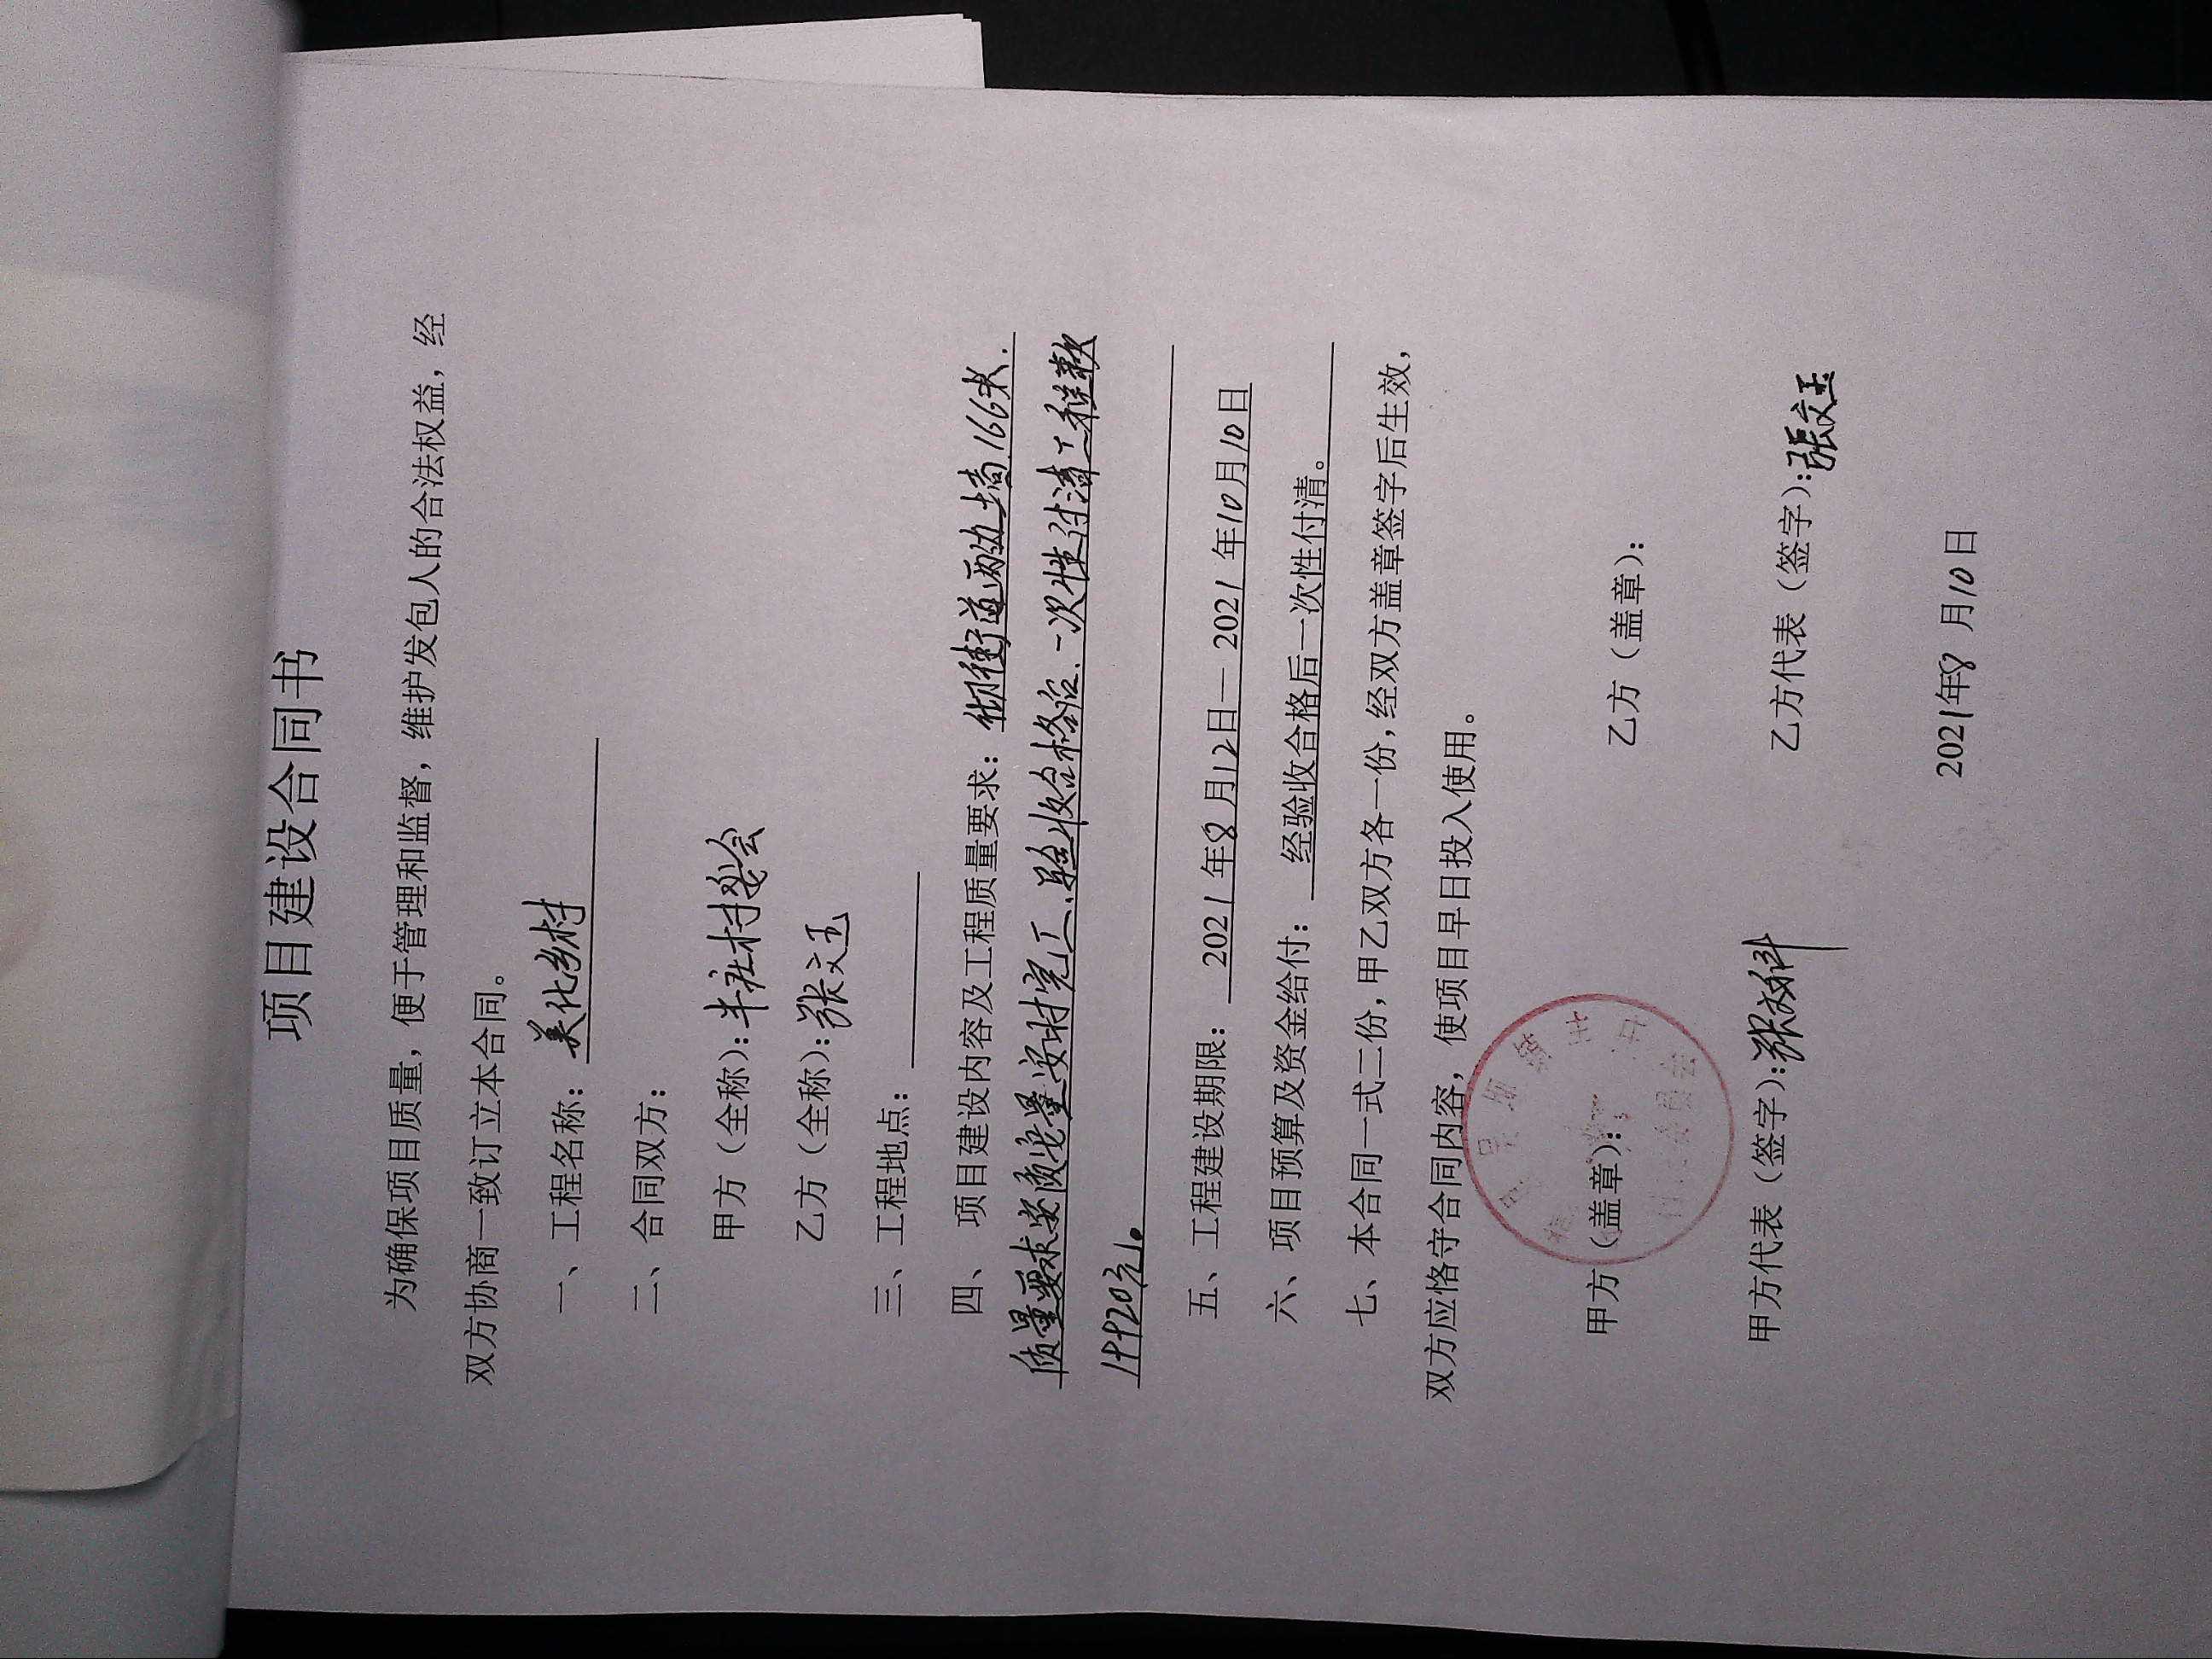 项目建设合同书
为确保项目质量，便于管理和监督，维护发包人的合法权益，经
双方协商一致订立本合同。
一、工程名称：美化乡村
二、合同双方：
甲方（全称）：半社村委会
乙方（全称）：张文玉
三、工程地点：
四、项目建设内容及工程质量要求：砌街道两边墙166米.
质量要求：保质量按时完工.验收合格后.一次性付清工程款
20元。
五、工程建设期限：2021年8月12日—2021年10月10日
六、项目预算及资金给付：经验收合格后一次性付清。
七、本合同一式二份，甲乙双方各一份，经双方盖章签字后生效，
双方应恪守合同内容，使项目早日投入使用。
甲方（盖章）： 乙方（盖章）：
甲方代表（签字）：张文科 乙方代表（签字）：张文玉
2021年8月10日